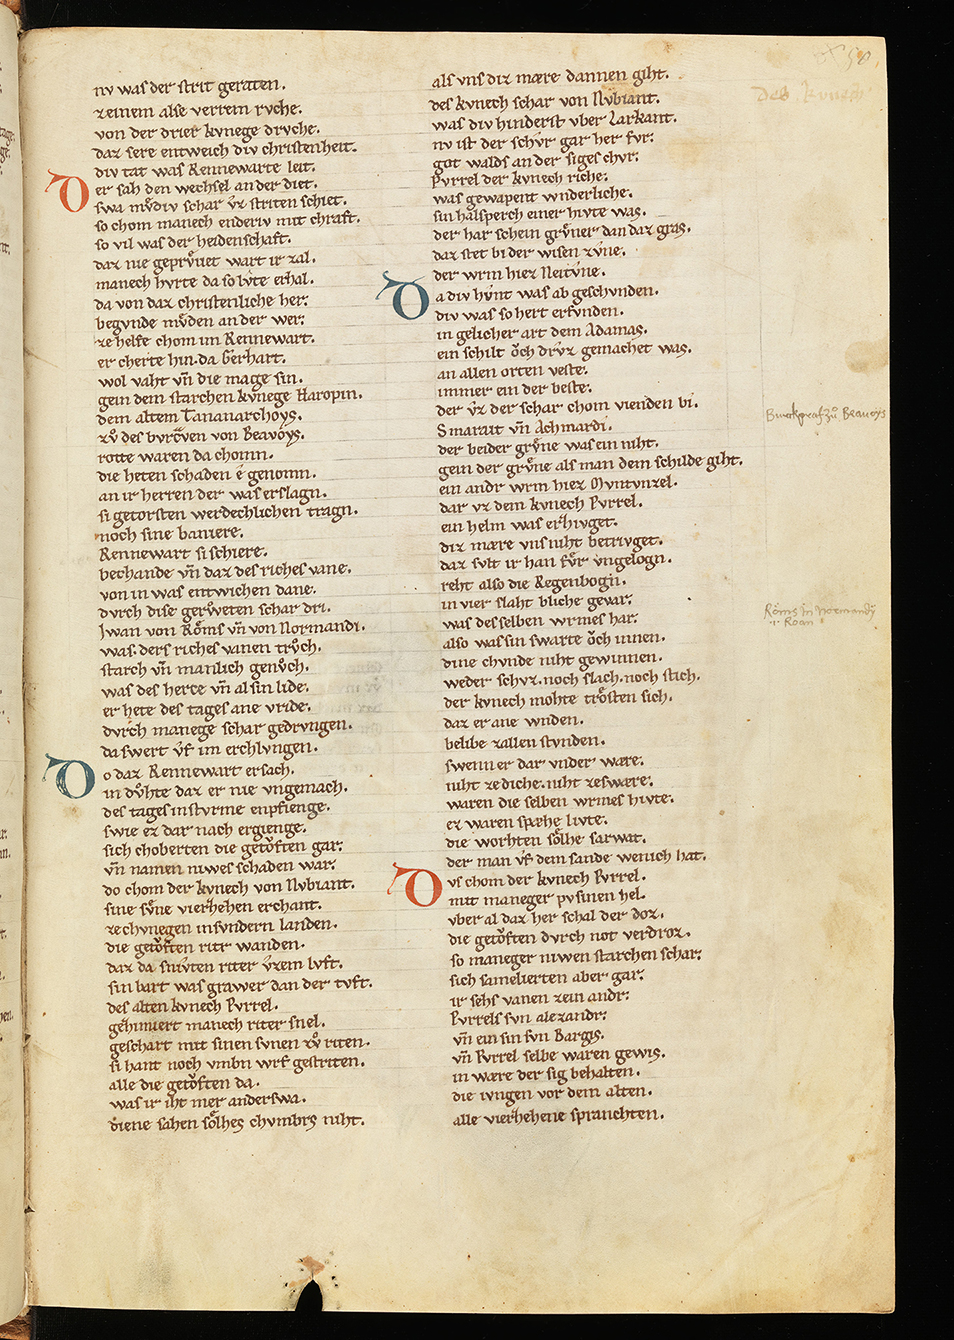 nv was der strit geraten.
zeinem alse verrem rvche.
von der drier kvnege drvche.
daz sere entweich div christenheit.
div tat was Rennewarte leit.
Der sah den wechsel an der diet.
swa mv̊div schar v̂z striten schiet.
so chom manech enderiv mit chraft.
so vil was der heidenschaft.
daz nie geprv̊uet wart ir zal.
manech hvrte da so lv̂te erhal.
da von daz christenliche her:
begvnde mv̊den an der wer:
ze helfe chom im Rennewart.
er cherte hin. da Gerhart.
wol vaht vn̄ die mage sin.
gein dem starchen kvnege Haropin.
dem altem Tananarchoys.
zv̊ des bvrcᵃven von Beavoys.
rotte waren da chomn.
die heten schaden e genomn.
an ir herren der was erslagn.
si getorsten werdechlichen tragn.
noch sine baniere.
Rennewart si schiere.
bechande vn̄ daz des riches vane.
von in was entwichen dane.
dvrch dise gerv̊weten schar dri.
Iwan von Rôms vn̄ von Normandi.
was. ders riches vanen trv̊ch.
starch vn̄ manlich genv̊ch.
was des herce vn̄ al sin lide.
er hete des tages ane vride.
dvrch manege schar gedrvngen.
da swert v̂f im erchlvngen.
Do daz Rennewart ersach.
in dv̊hte daz er nie vngemach.
des tages in stvrme enpfienge.
swie ez dar nach ergienge.
sich choberten die getôften gar:
vn̄ namen niwes schaden war:
do chom der kvnech von Nvbiant.
sine sv̊ne vierzhehen erchant.
ze chvnegen in svndern landen.
die getôften ritr wanden.
daz da snivten riter v̂zem lvft.
sin bart was grawer dan der tvft.
des alten kvnech Pvrrel.
gehivriert manech riter snel.
geschart mit sinen svnen zv̊ riten.
si hant noch vmbn wrf gestriten.
alle die getôften da.
was ir iht mer anderswa.
diene sahen sôlhes chvmbrs niht.
als vns diz mære dannen giht.
des kvnech schar von Nvbiant.
was div hinderst vber Larkant.
nv ist der schv̂r gar her fvr:
got walds an der siges chvr:
Pvrrel der kvnech riche:
was gewapent wnderliche.
sin halsperch einer hivte was.
der har schein grv̊ner dan daz gras.
daz stet bi der wisen zv̂ne.
der wrm hiez Neitv̂ne.
Da div hv̂nt was ab geschvnden.
div was so hert erfvnden.
in gelicher art dem Adamas.
ein schilt ôch drv̂z gemachet was.
an allen orten veste:
immer ein der beste:
der v̂z der schar chom vienden bi.
Smarait vn̄ Achmardi.
der beider grv̊ne was ein niht.
gein der grv̊ne als man dem schilde giht.
ein andr wrm hiez Mvntvnzel.
dar vz dem kvnech Pvrrel.
ein helm was erzhivget.
diz mære vns niht betrivget.
daz svlt ir han fv̂r vngelogn.
reht also die Regenbogn.
in vier slaht bliche gevar:
was des selben wrmes har:
also was sin swarte ôch innen.
dine chvnde niht gewinnen.
weder schvz. noch slach. noch stich.
der kvnech mohte trôsten sich.
daz er ane wnden.
belibe zallen stvnden.
swenn er dar vnder wære.
niht ze diche. niht ze swære.
waren die selben wrmes hivte.
ez waren spæhe livte.
die worhten sôlhe sarwat.
der man v̂f dem sande wenich hat.
Dvs chom der kvnech Pvrrel.
mit maneger pvsinen hel.
vber al daz her schal der doz.
die getôften dvrch not verdroz.
so maneger niwen starchen schar:
sich samelierten aber gar:
ir sehs vanen zein andr:
Pvrrels svn alexandr:
vn̄ ein sin svn Bargis.
vn̄ Pvrrel selbe waren gewis.
in wære der sig behalten.
die ivngen vor dem alten.
alle vierzhehene spranchten.
58.
Des kvnech
Burckgraf zů Beaveys
Röms in Normandÿ
.i. Roan